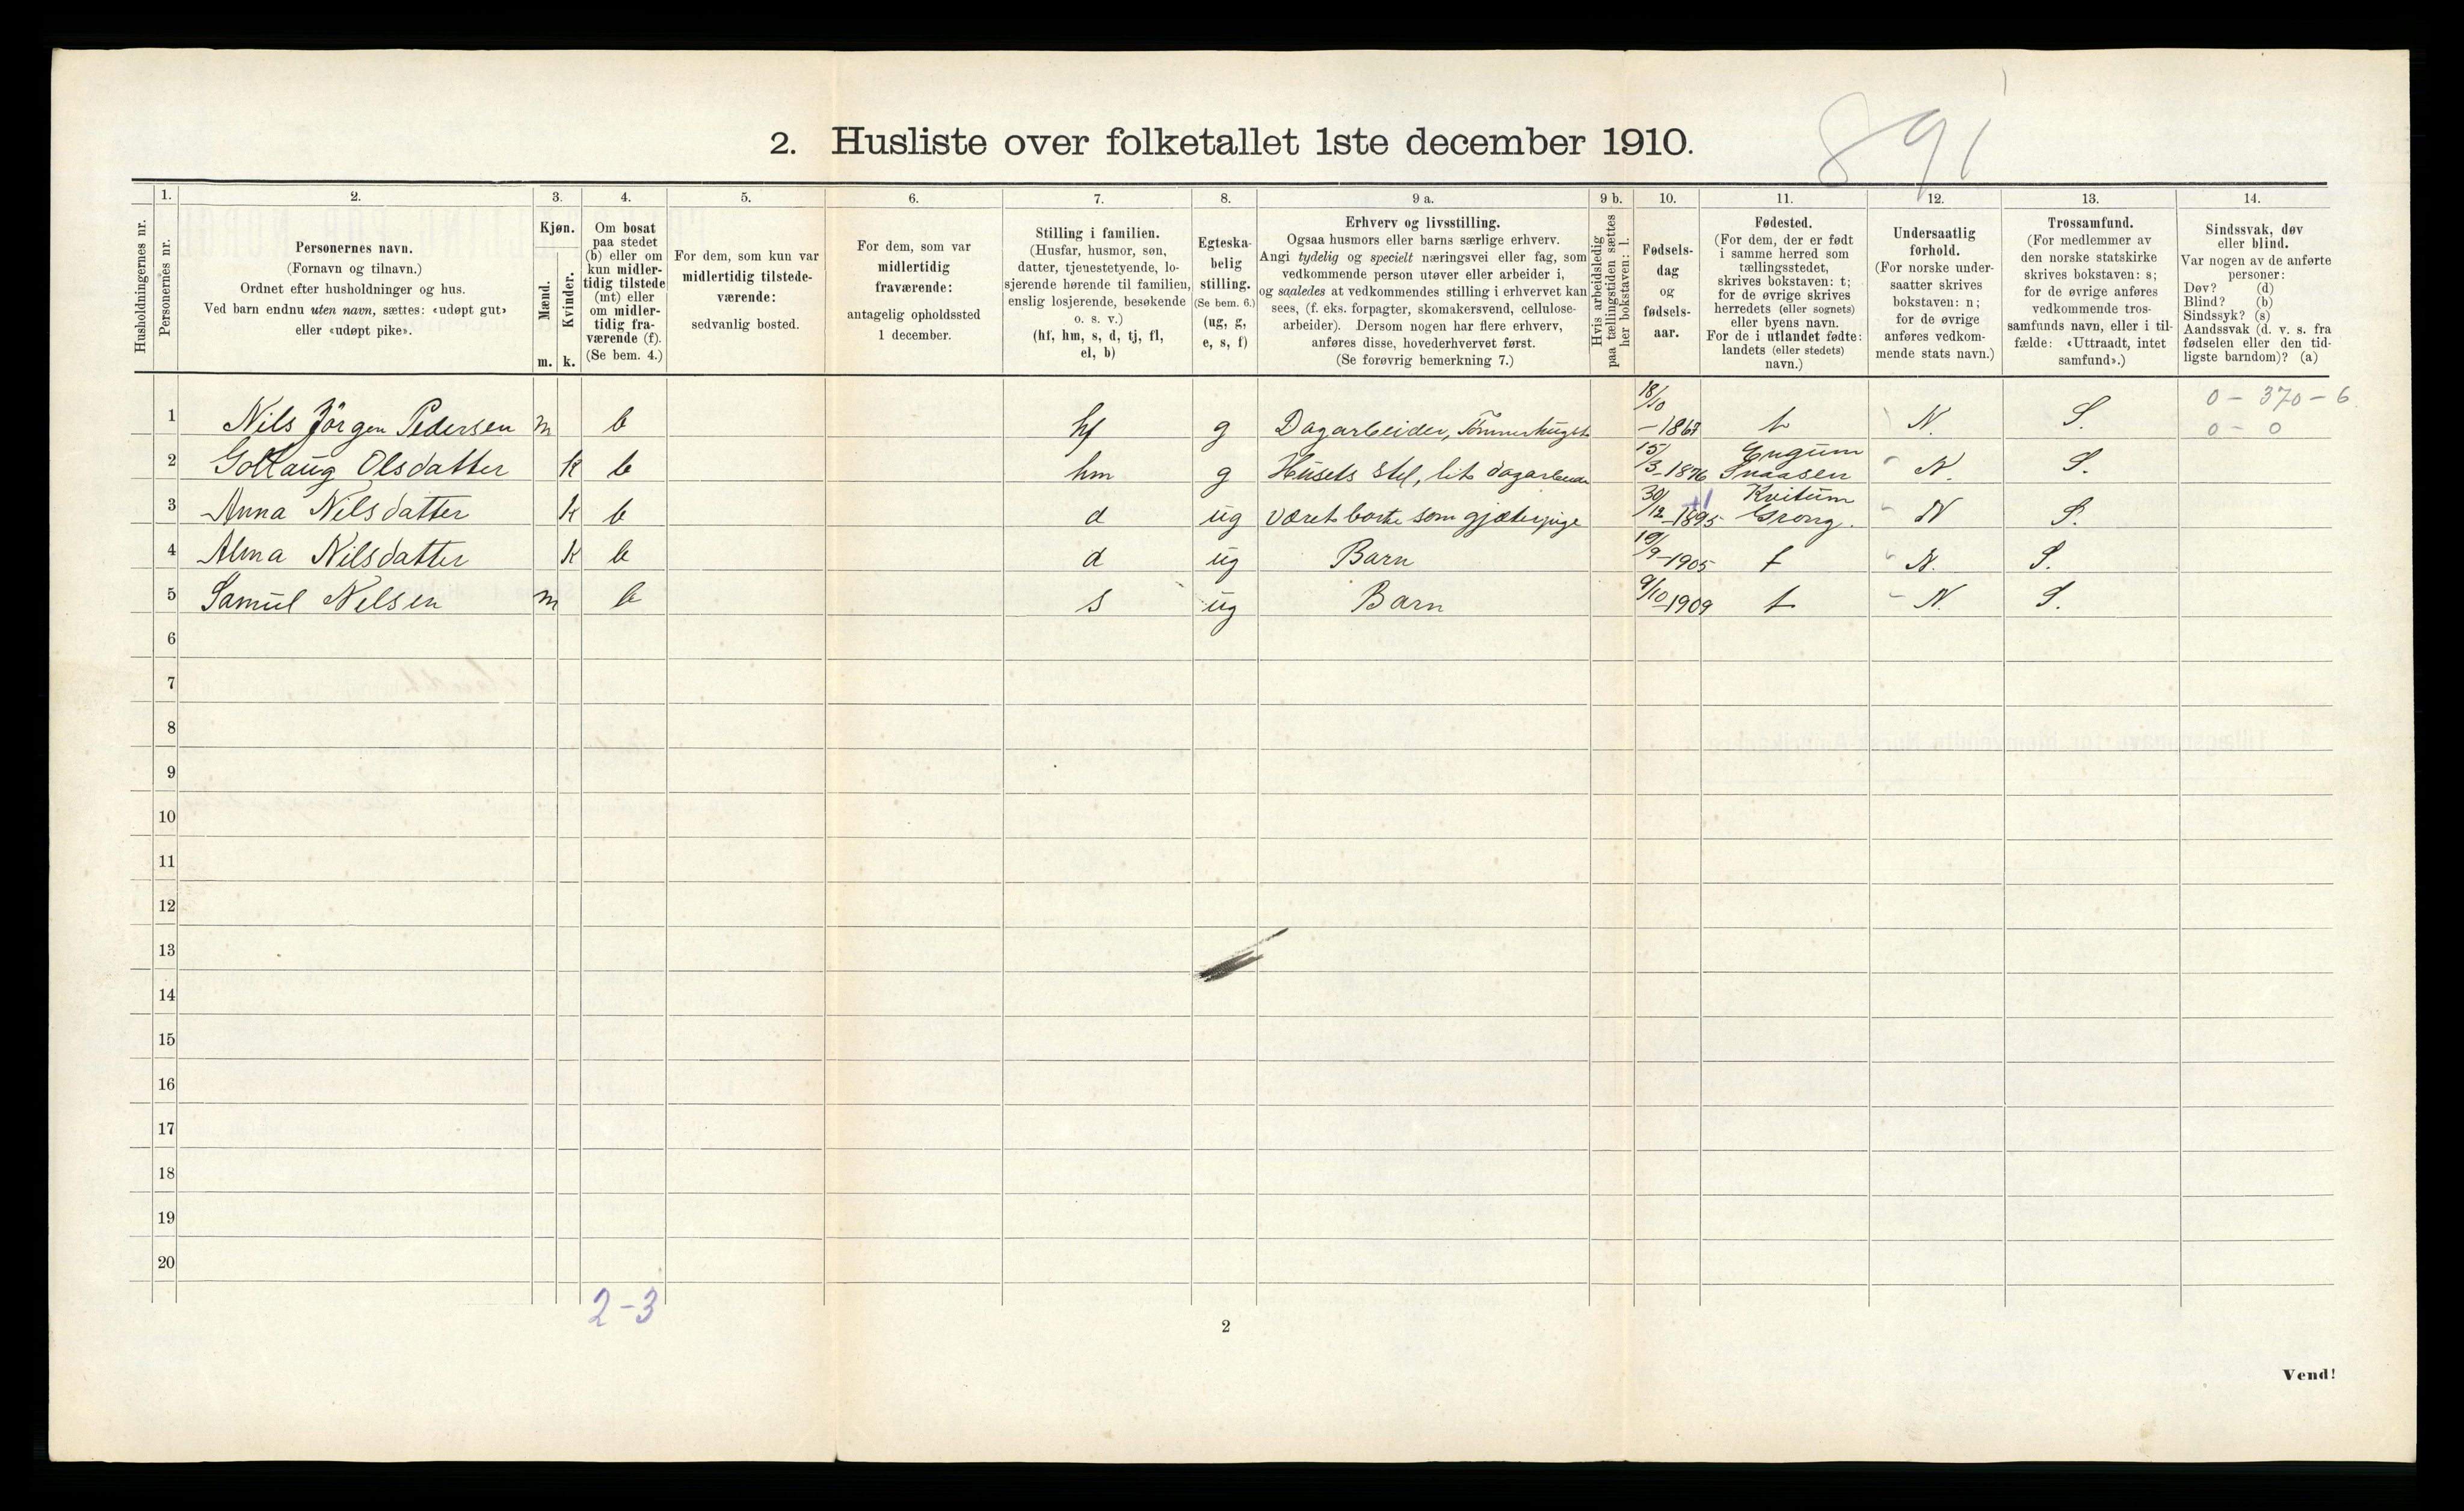 891
2. Husliste over folketallet 1ste december 1910.
Husholdningernes nr.
1.
Personernes nr.
2.
Personernes navn.
(Fornavn og tilnavn.)
Ordnet efter husholdninger og hus.
Ved barn endnu uten navn, sættes: «udøpt gut»
eller «udøpt pike».
3.
Kjøn.
Mænd.
m.
Kvinder.
k.
4.
Om bosat
paa stedet
(b) eller om
kun midler-
tidig tilstede
(mt) eller
om midler-
tidig fra-
værende (f).
(Se bem. 4.)
5.
For dem, som kun var
midlertidig tilstede-
værende:
sedvanlig bosted.
6.
For dem, som var
midlertidig
fraværende:
antagelig opholdssted
1 december.
7.
Stilling i familien.
(Husfar, husmor, søn,
datter, tjenestetyende, lo-
sjerende hørende til familien,
enslig losjerende, besøkende
o. s. v.)
(hf, hm, s, d, tj, fl,
el, b)
8.
Egteska-
belig
stilling.
(Se bem. 6.)
(ug, g,
e, s, f)
9 a.
Erhverv og livsstilling.
Ogsaa husmors eller barns særlige erhverv.
Angi tydelig og specielt næringsvei eller fag, som
vedkommende person utøver eller arbeider i,
og saaledes at vedkommendes stilling i erhvervet kan
sees, (f. eks. forpagter, skomakersvend, cellulose-
arbeider). Dersom nogen har flere erhverv,
anføres disse, hovederhvervet først.
(Se forøvrig bemerkning 7.)
9 b.
Hvis arbeidsledig
paa tællingstiden sættes
her bokstaven: l.
10.
Fødsels-
dag
og
fødsels-
aar.
11.
Fødested.
(For dem, der er født
i samme herred som
tællingsstedet,
skrives bokstaven: t;
for de øvrige skrives
herredets (eller sognets)
eller byens navn.
For de i utlandet fødte:
landets (eller stedets)
navn.)
12.
Undersaatlig
forhold.
(For norske under-
saatter skrives
bokstaven: n;
for de øvrige
anføres vedkom-
mende stats navn.)
13.
Trossamfund.
(For medlemmer av
den norske statskirke
skrives bokstaven: s;
for de øvrige anføres
vedkommende tros-
samfunds navn, eller i til-
fælde: «Uttraadt, intet
samfund».)
14.
Sindssvak, døv
eller blind.
Var nogen av de anførte
personer:
Døv? (d)
Blind? (b)
Sindssyk? (s)
Aandssvak (d. v. s. fra
fødselen eller den tid-
ligste barndom)? (a)
0 - 370 - 6
0 - 0
1 Nils Jörgen Pedersen m b hf g Dagarbeider, Tömmerhugst 18/10 -1867 t N. S.
2 Golaug Olsdatter k b hm g Husets stel, lit dagarbeide 15/3-1876 Snaasen N. S.
3 Anna Nilsdatter k b d ug været borte som gjæterpige 30/12-1895 Grong. N S.
4 Alma Nilsdatter k b d ug Barn 19/9-1905 t N. S.
5 Samul Nelsen m b s ug Barn 9/10-1909 t N. S.
6
7
8
9
10
11
12
13
14
15
16
17
18
19
20
2-3
2
Vend!